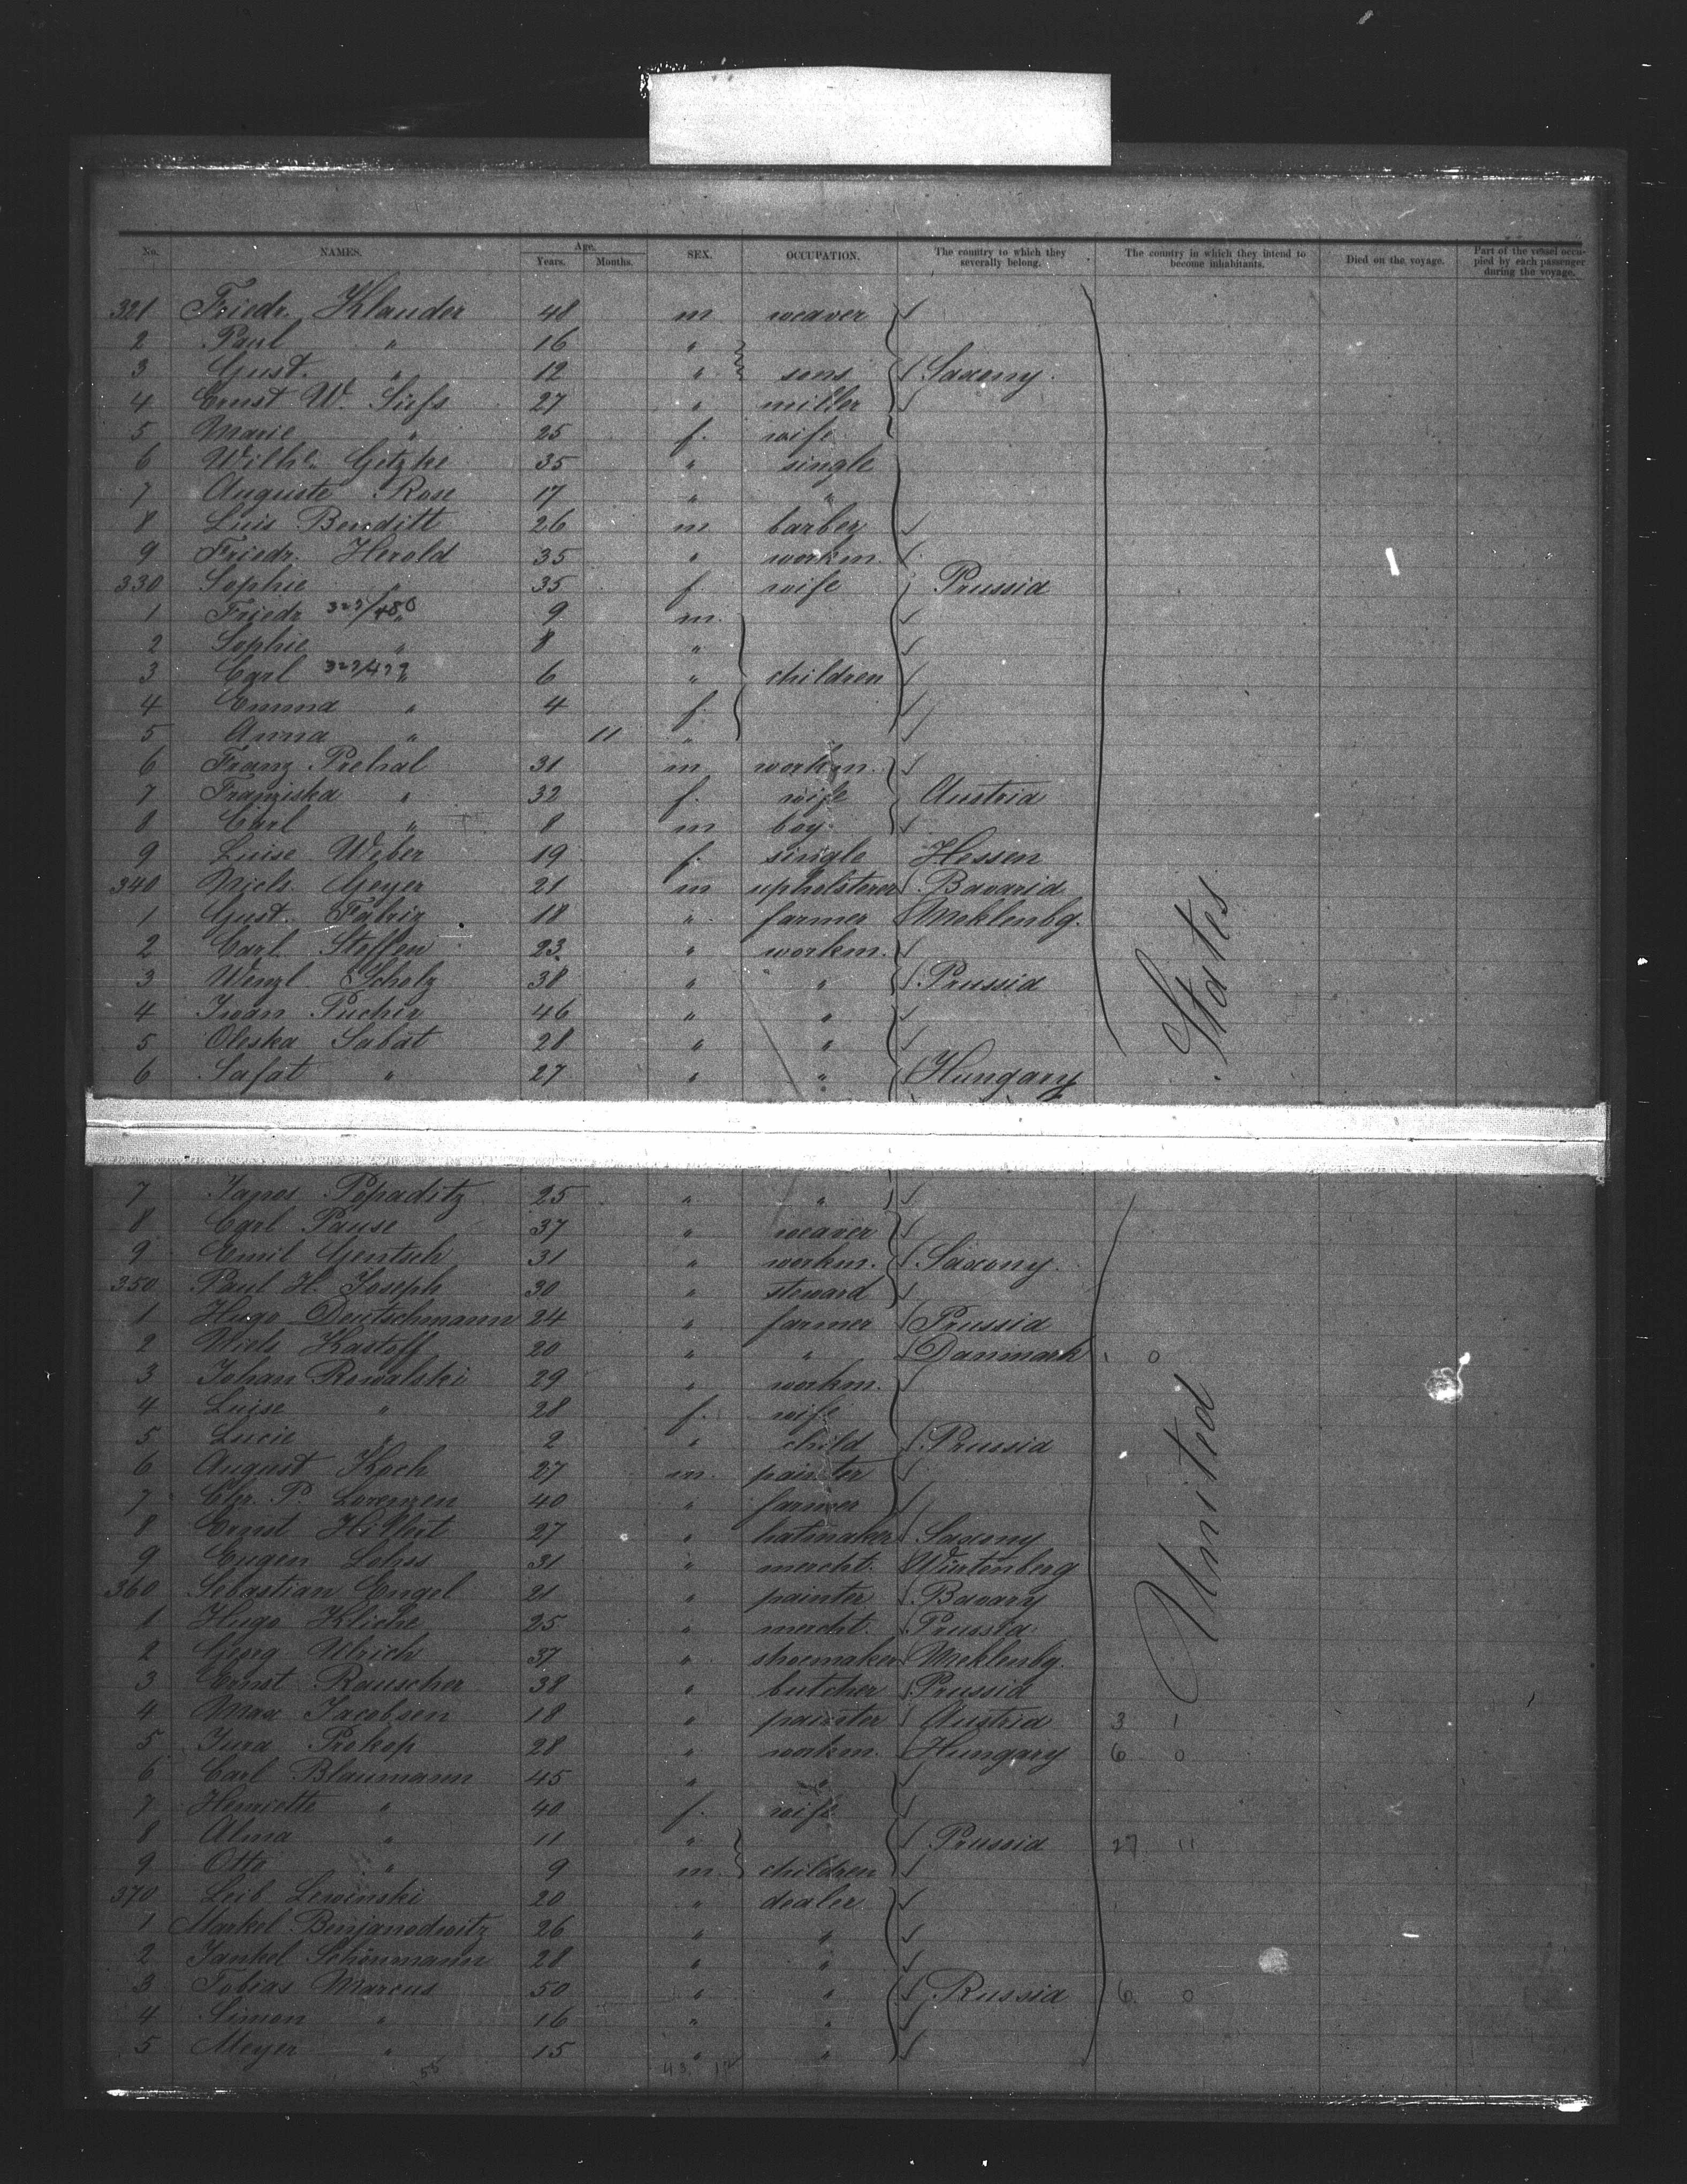 No. NAMES. Age. Years. Months. SEX. OCCUPATION. The country to which they severally belong. The country in which they intend to become inhabitants. Died on the voyage. Part of the vessel occupied by each passenger during the voyage.
321 Friedr. Klauder 48 m weaver
2 Paul " 16 "
3 Gust. " 12 " sons Saxony.
4 Ernst W. Süfs 27 " miller
5 Marie " 25 f. wife
6 Wilhe. Getzke 35 " single
7 Auguste Rose 17 " "
8 Luis Benditt 26 m barber
9 Friedr. Herold 35 " workm.
330 Sophie " 35 f. wife Prussia
1 Friedr. " 9 m.
2 Sophie " 8 "
3 Carl " 6 " children
4 Emma " 4 f.
5 Anna " 11 "
6 Franz Prehal 31 m workm.
7 Franziska " 32 f. wife Austria
8 Carl " 8 m boy.
9 Luise Weber 19 f. single Hessen
340 Mich. Geyer 21 m upholsterer Bavaria
1 Gust. Fabriz 18 " farmer Meklenbg.
2 Carl Steffen 23 " workm.
3 Wenzl Scholz 38 " " Prussia
4 Iwan Puchir 46 " "
5 Oleska Sabat 28 " "
6 Safat " 27 " " Hungary
States
7 Janos Popaditz 25 " "
8 Carl Pause 37 " weaver
9 Emil Gentsch 31 " workm. Saxony.
350 Paul H. Joseph 30 " steward
1 Hugo Deutschmann 24 " farmer Prussia
2 Niels Kastoff 20 " " Danmark 1 0
3 Johan Kowalski 29 " workm.
4 Luise " 28 f. wife
5 Lucie " 2 " child Prussia
6 August Koch 27 m. painter
7 Chr. P. Lorenzen 40 " farmer
8 Ernst Hilbert 27 " hatmaker Saxony
9 Eugen Lohss 31 " mercht. Würtenberg
360 Sebastian Engel 21 " painter Bavary
1 Hugo Kliche 25 " mercht. Prussia
2 Georg Ulrich 37 " shoemaker Meklenbg.
3 Ernst Rauscher 38 " butcher Prussia
4 Max Jacobsen 18 " painter Austria 3 1
5 Jura Prokop 28 " workm. Hungary 6 0
6 Carl Blaumann 45 " "
7 Henriette " 40 f. wife
8 Alma " 11 " Prussia 27 11
9 Otto " 9 m. children
370 Leib Lewinski 20 " dealer
1 Markel Benjanodwitz 26 " "
2 Jankel Schönmann 28 " "
3 Tobias Marcus 50 " " Russia 6 0
4 Simon " 16 " "
5 Meyer " 15 " "
United
55 43 12